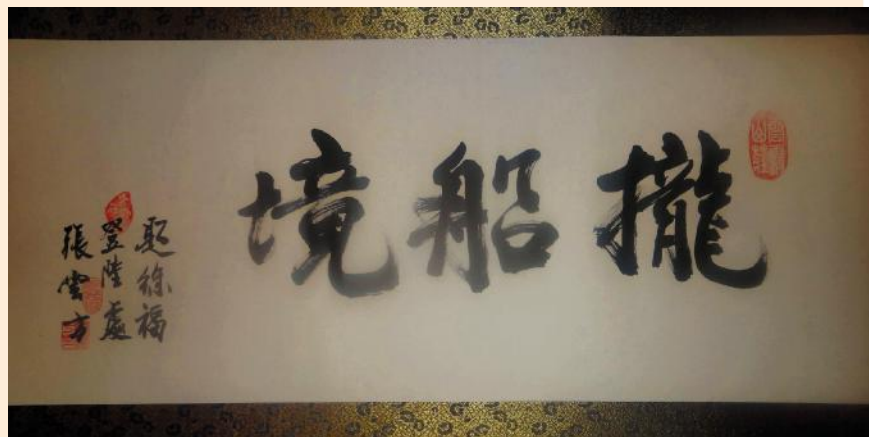 攏船境
題徐福
登陸處
張雲方